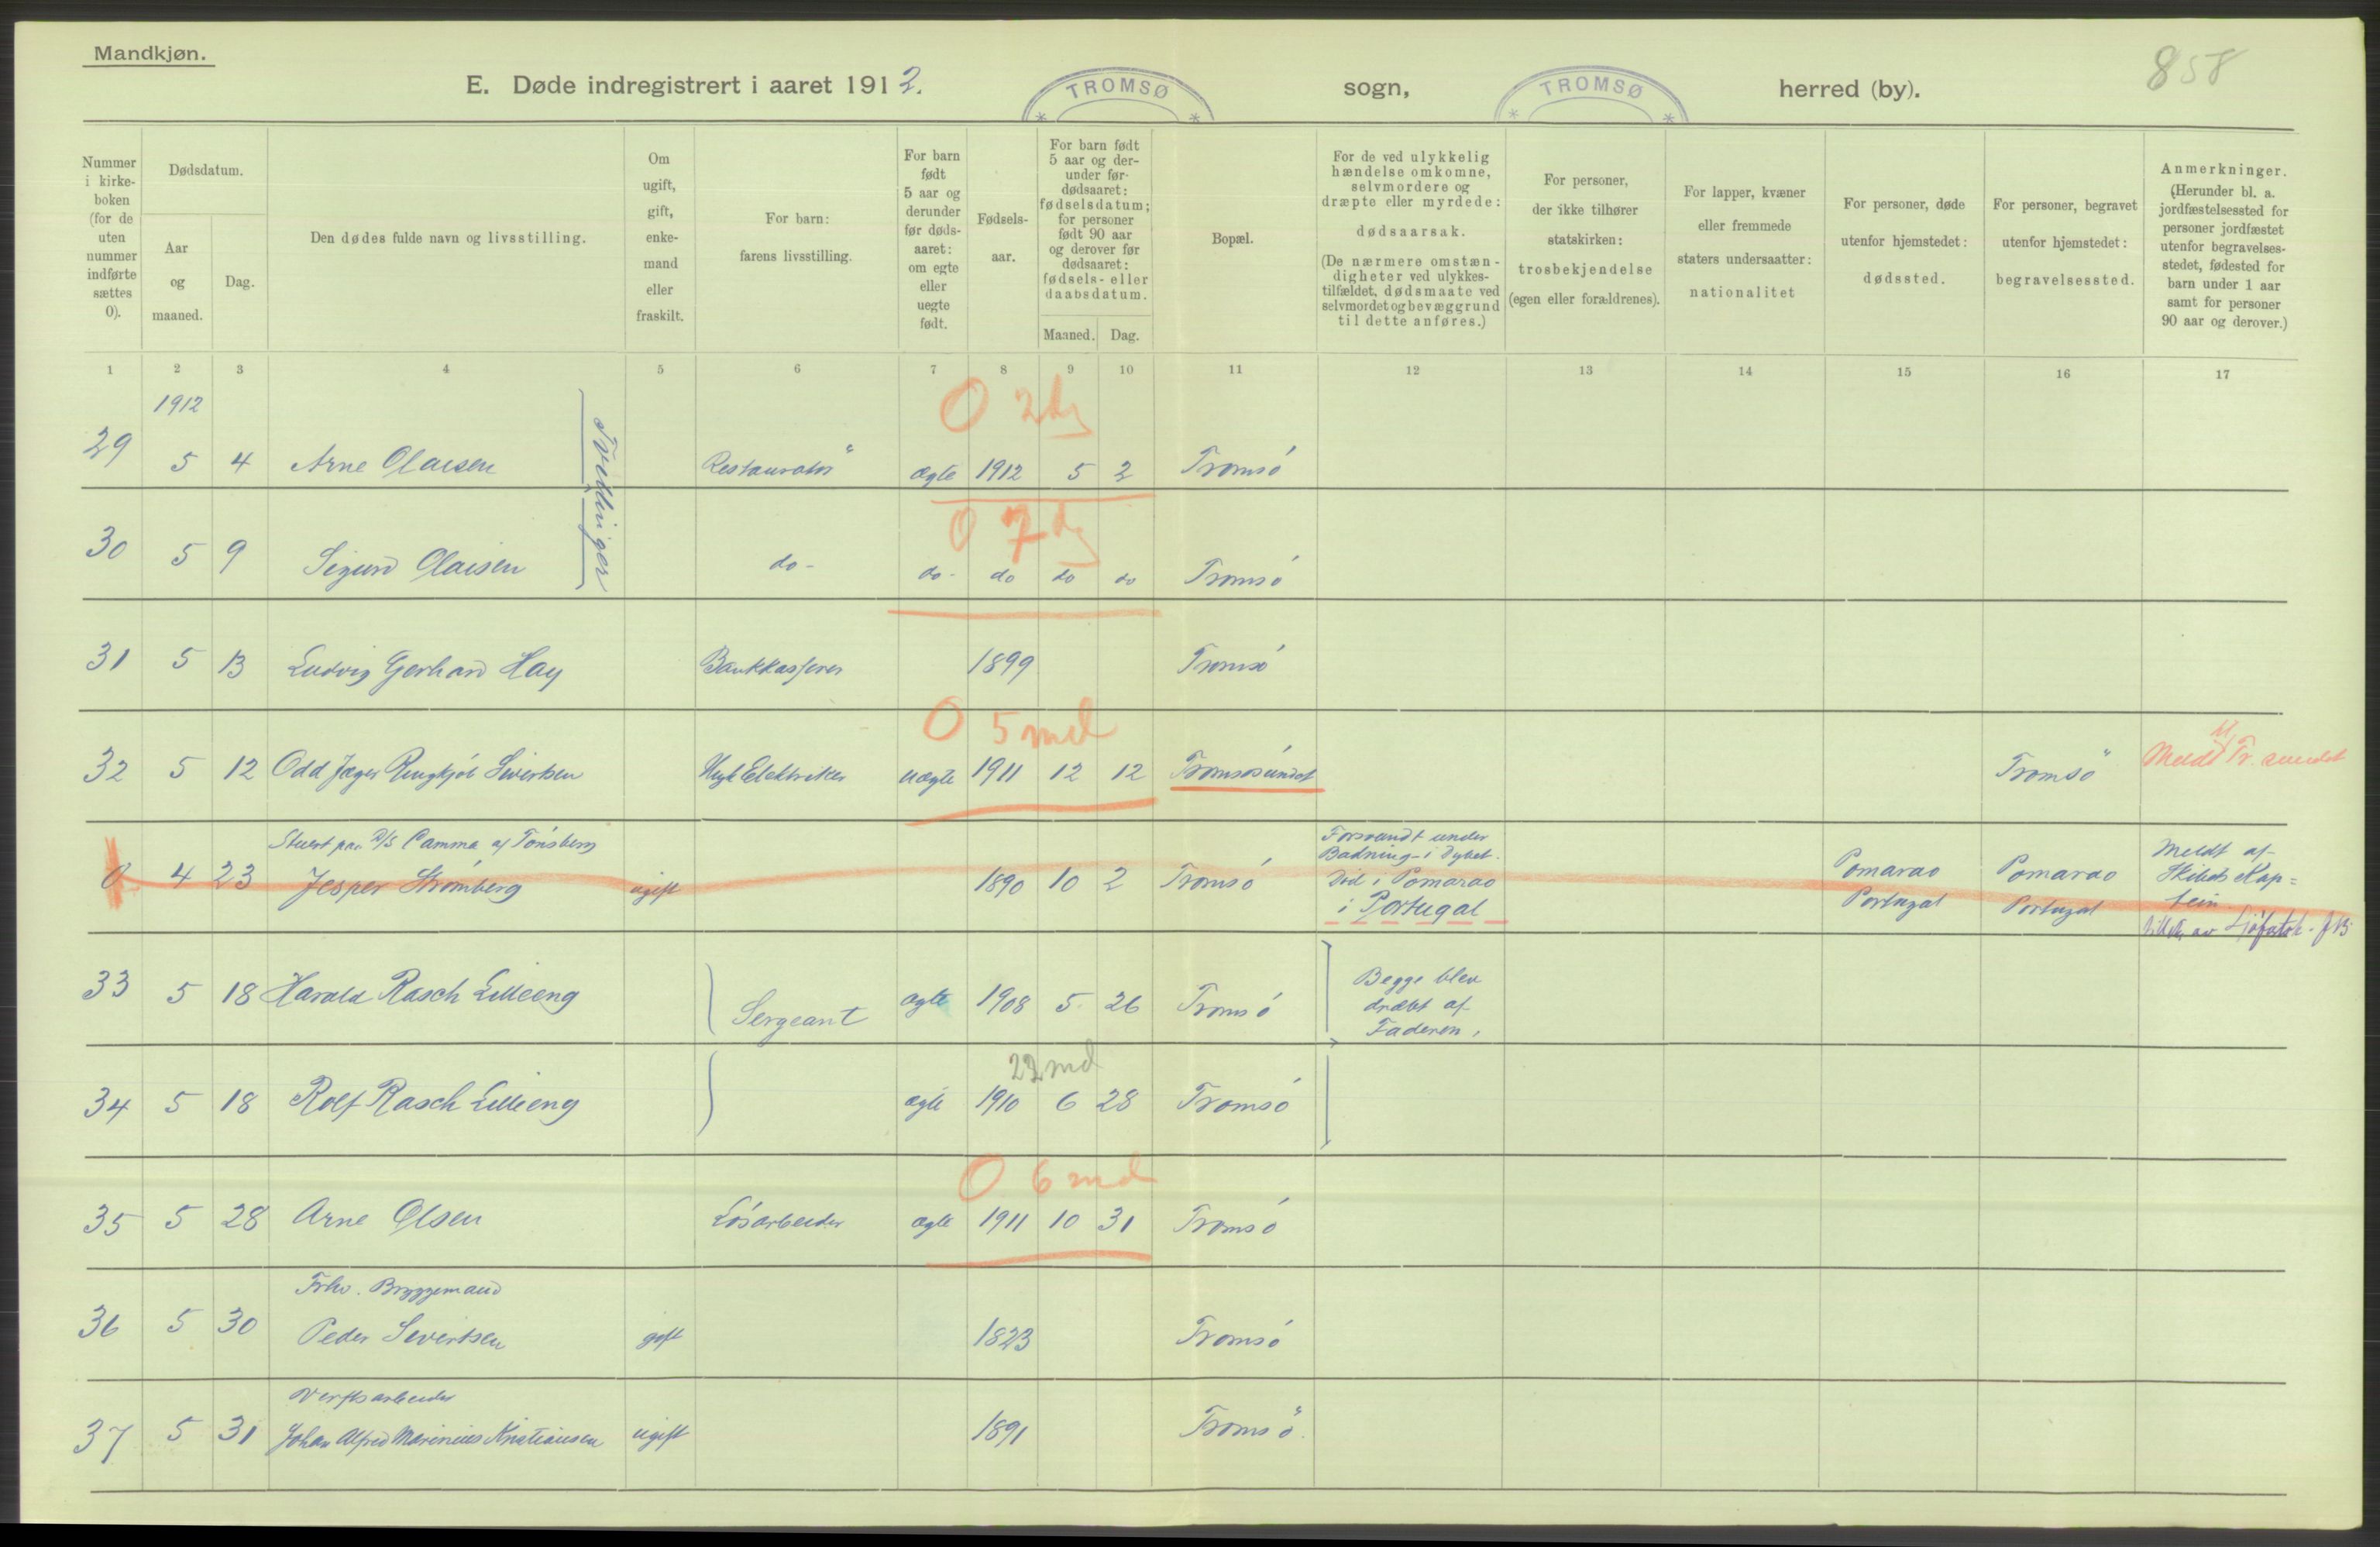 Mandkjøn.
858
E. Døde indregistrert i aaret 1912. TROMSØ sogn, TROMSØ herred (by).
Nummer i kirke-boken (for de uten nummer indførte sættes 0).
Dødsdatum.
Aar og maaned.
Dag.
Den dødes fulde navn og livsstilling.
Om ugift, gift, enke-mand eller fraskilt.
For barn: farens livsstilling.
For barn født 5 aar og derunder før døds-aaret: om egte eller uegte født.
Fødsels-aar.
For barn født 5 aar og der-under før dødsaaret: fødselsdatum; for personer født 90 aar og derover før dødsaaret: fødsels- eller daabsdatum.
Maaned. Dag.
Bopæl.
For de ved ulykkelig hændelse omkomne, selvmordere og dræpte eller myrdede: dødsaarsak. (De nærmere omstæn-digheter ved ulykkes-tilfældet, dødsmaate ved selvmordet og bevæggrund til dette anføres.)
For personer, der ikke tilhører statskirken: trosbekjendelse (egen eller forældrenes).
For lapper, kvæner eller fremmede staters undersaatter: nationalitet
For personer, døde utenfor hjemstedet: dødssted.
For personer, begravet utenfor hjemstedet: begravelsessted.
Anmerkninger. (Herunder bl. a. jordfæstelsessted for personer jordfæstet utenfor begravelses-stedet, fødested for barn under 1 aar samt for personer 90 aar og derover.)
1 2 3 4 5 6 7 8 9 10 11 12 13 14 15 16 17
1912
0 2 dg
29 5 4 Arne Olaisen Restauratør ægte 1912 5 2 Tromsø
Tvillinger
0 7 dg
30 5 9 Sigurd Olaisen do - do - do do do Tromsø
31 5 13 Ludvig Gerhard Hay Bankkasserer 1899 Tromsø
0 5 md
32 5 12 Odd Jæger Ringkjøb Sivertsen Elektriker uægte 1911 12 12 Tromsøsundet Tromsø Meldt Tr. sundet
Stuert paa D/S Camma af Tønsberg
0 4 23 Jesper Strømberg ugift 1890 10 2 Tromsø
Forsvandt under
Badning i Dybet.
Død i Pomarao
i Portugal
Pomarao
Portugal
Pomarao
Portugal
Meldt af
Skibets Kap=
tein
33 5 18 Harald Rasch Lilleeng Sergeant ægte 1908 5 26 Tromsø
Begge blev
dræbt af
Faderen.
22 md
34 5 18 Rolf Rasch Lilleeng ægte 1910 6 28 Tromsø
0 6 md
35 5 28 Arne Olsen Løsarbeider ægte 1911 10 31 Tromsø
Frhv. Bryggemand
36 5 30 Peder Sivertsen gift 1823 Tromsø
Verftsarbeider
37 5 31 Johan Alfred Marinius Kristiansen ugift 1891 Tromsø.